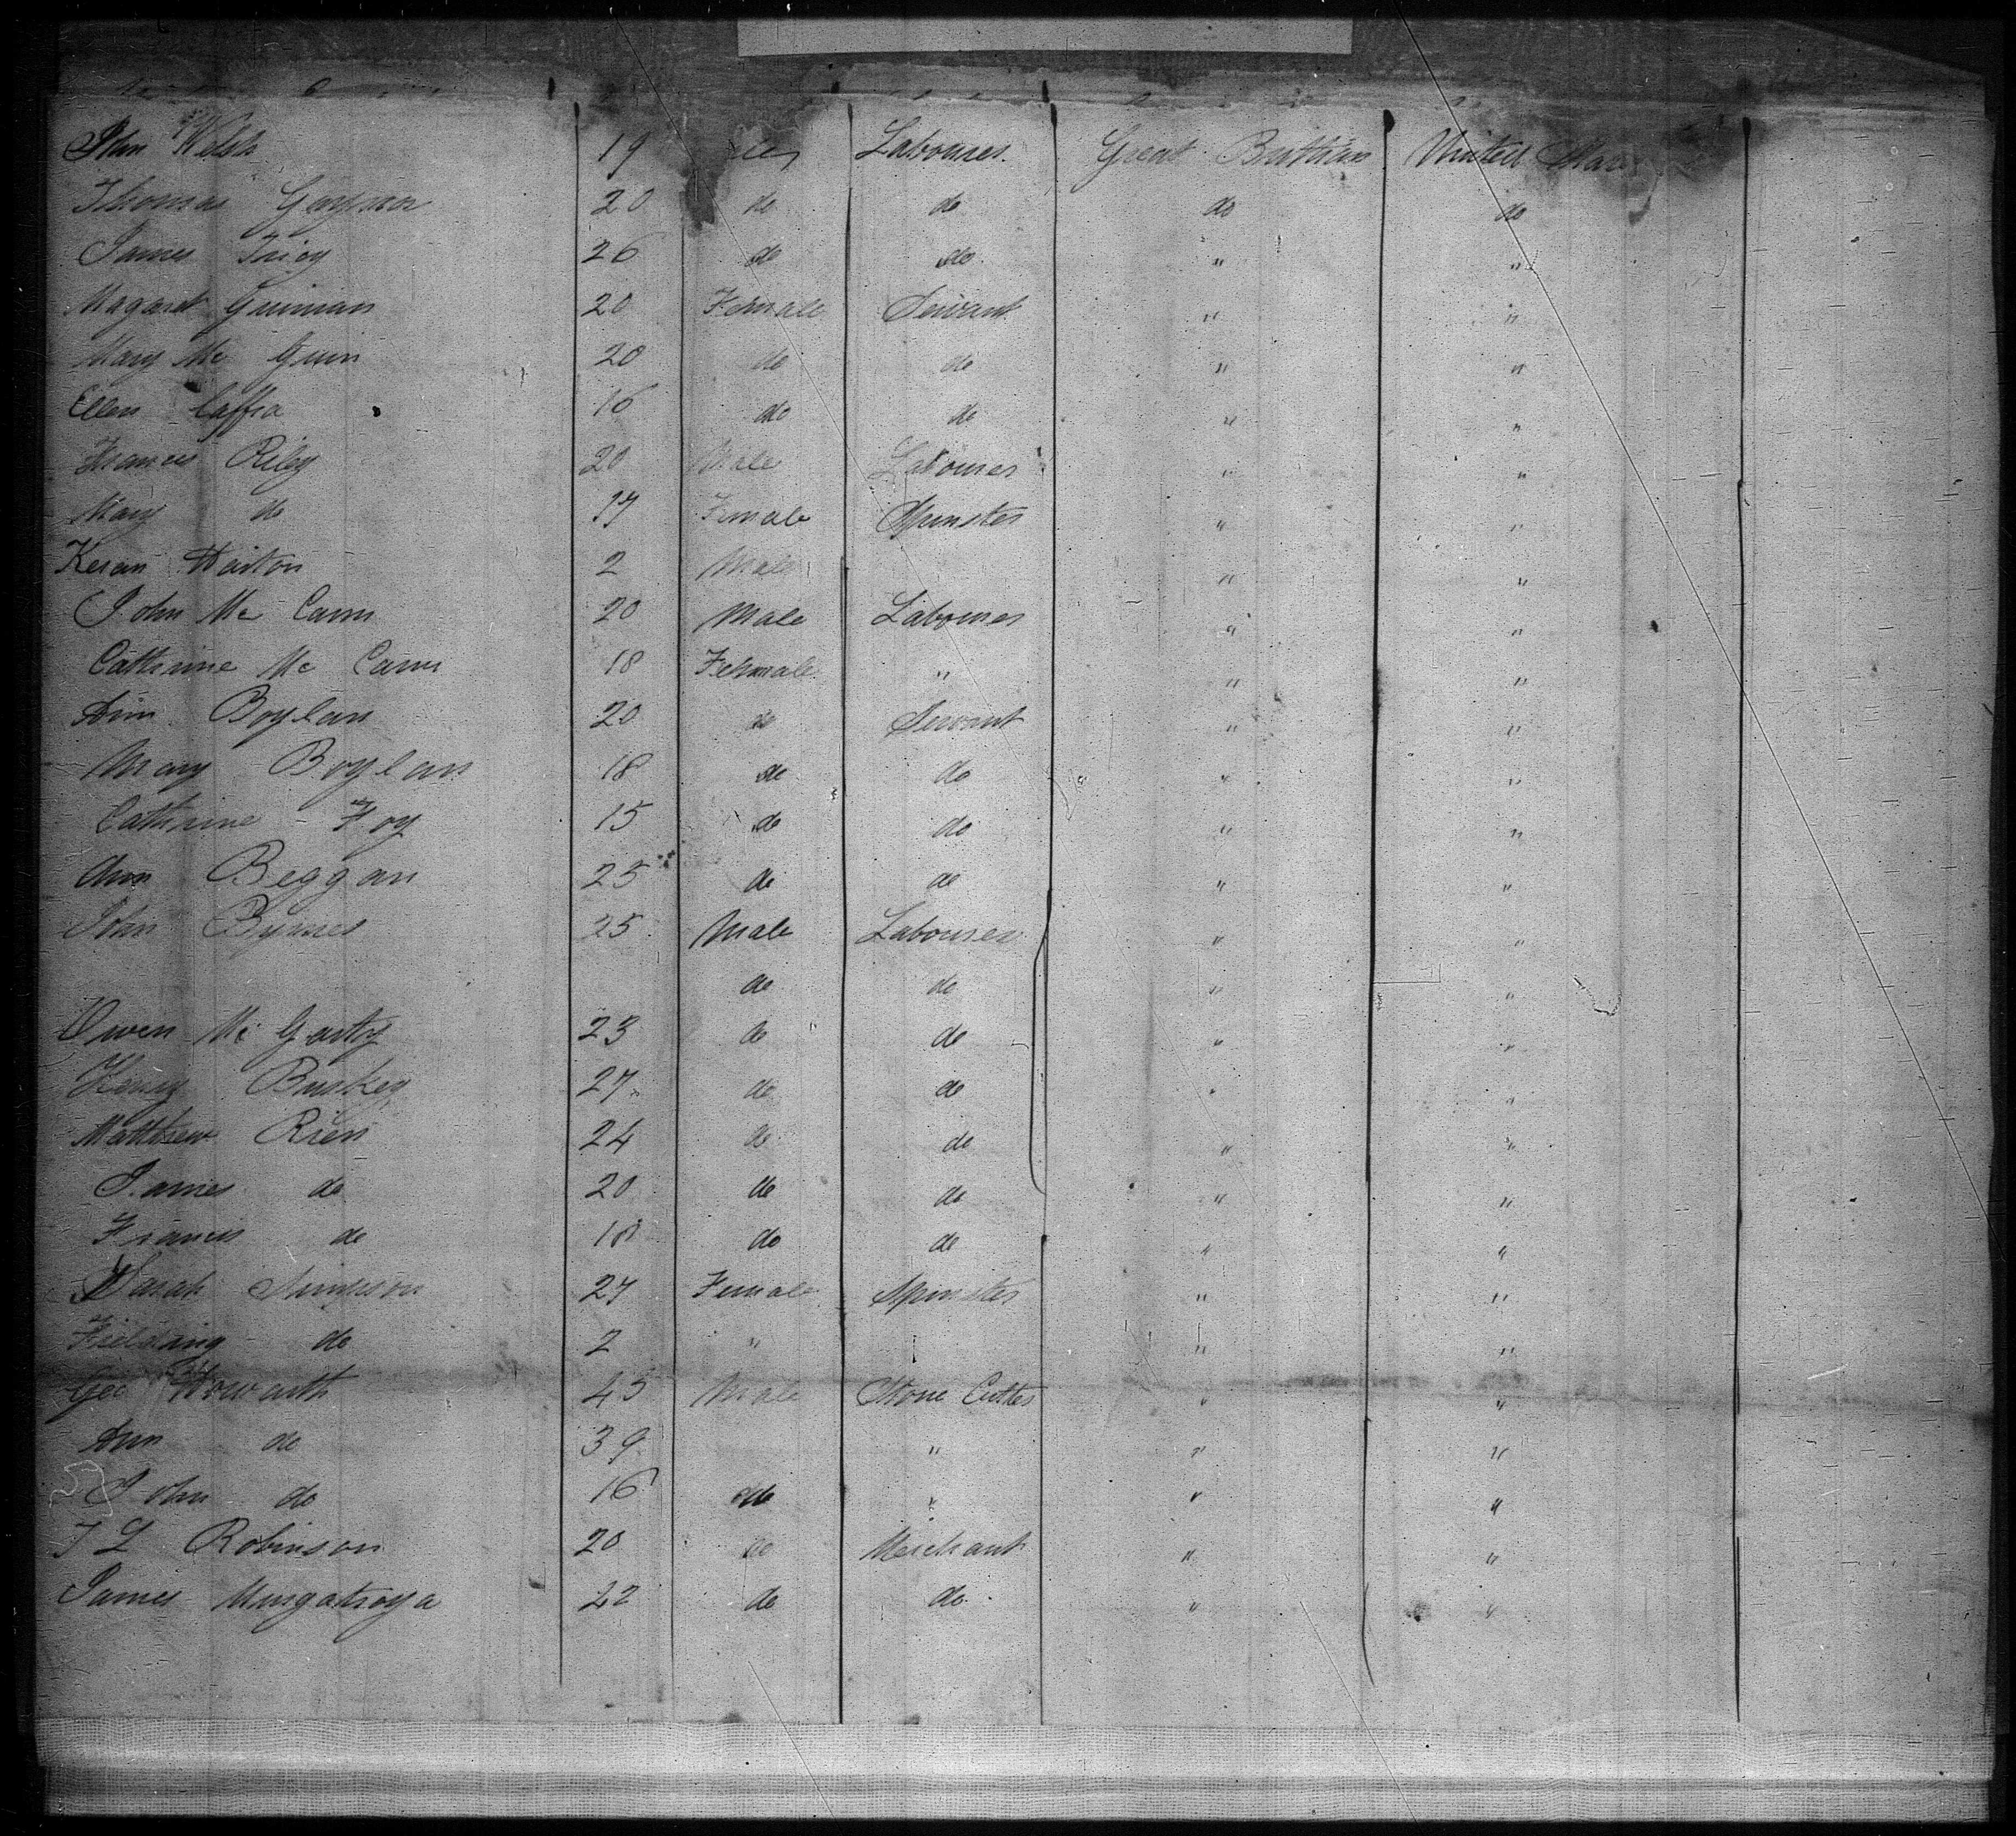 John Welsh 19 Labourer Great Brittian United
Thomas Gaynor 20 do do do do
James 26 do do " "
Magaret Guinian 20 Female Servant " "
Mary Mc Guin 20 do do " "
Ellen Caffra 16 do do " "
Frances Riley 20 Male Labourer " "
Mary do 17 Female Spinster " "
Keran 2 Male " "
John Mc Cann 20 Male Labourer " "
Catherine Mc Cann 18 Female " " "
Ann Boylan 20 do Servant " "
Mary Boylan 18 do do " "
Catherine Foy 15 do do " "
Ann Beggan 25 do do " "
John Byrnes 25 Male Labourer " "
do do " "
Owen Mc Garty 23 do do " "
Henry 27 do do " "
Matthew Rien 24 do do " "
James do 20 do do " "
Francis do 18 do do " "
Sarah 27 Female Spinster " "
Fielding do 2 " " "
Geo Howarth 45 Male Stone Cutter " "
Ann do 39 " " "
John do 16 do " " "
Robinson 20 do Merchant " "
James Murgatroya 22 do do " "